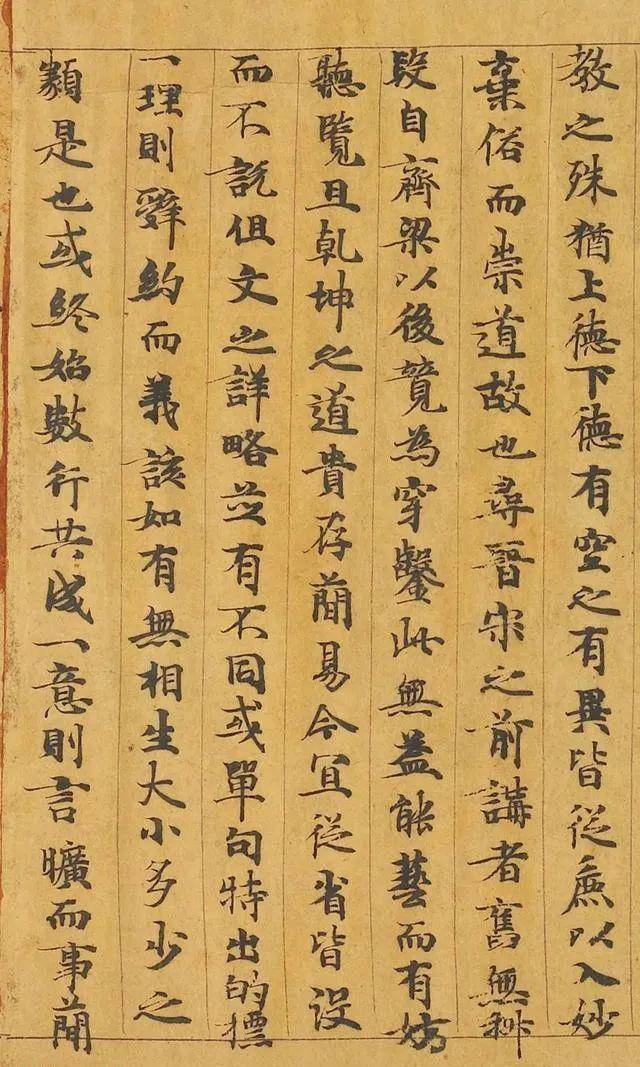 教之殊猶上德下德有空之有異皆從麁以入妙
棄俗而崇道故也尋晉宋之前講者舊無科
段自齊梁以後競為穿鑿此無益能藝而有妨
聽覽且乾坤之道貴存蕑易今宜從省皆沒
而不說但文之詳略並有不同或單句特出的摽
一理則辭約而義該如有無相生大小多少之
類是也或終始數行共成一意則言曠而事蕑